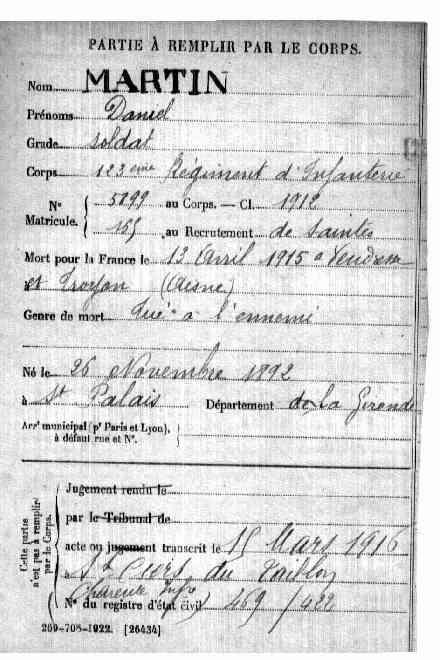 PARTIE À REMPLIR PAR LE CORPS.
Nom MARTIN
Prénoms Daniel
Grade soldat
Corps 123eme Régiment d'Infanterie
N° Matricule. 5899 au Corps. — Cl. 1912
155 au Recrutement de Saintes
Mort pour la France le 13 Avril 1915 a
et Troyon (Aisne)
Genre de mort Tué a l'ennemi
Né le 26 Novembre 1892
à St Palais Département de la Gironde
Arrt municipal (pr Paris et Lyon),
à défaut rue et N°.
Cette partie n'est pas à remplir par le Corps.
Jugement rendu le
par le Tribunal de
acte ou jugement transcrit le 15 Mars 1916
à St Ciers du Taillon
Charente Infre
N° du registre d'état civil 469/422
269-708-1922. [26434]